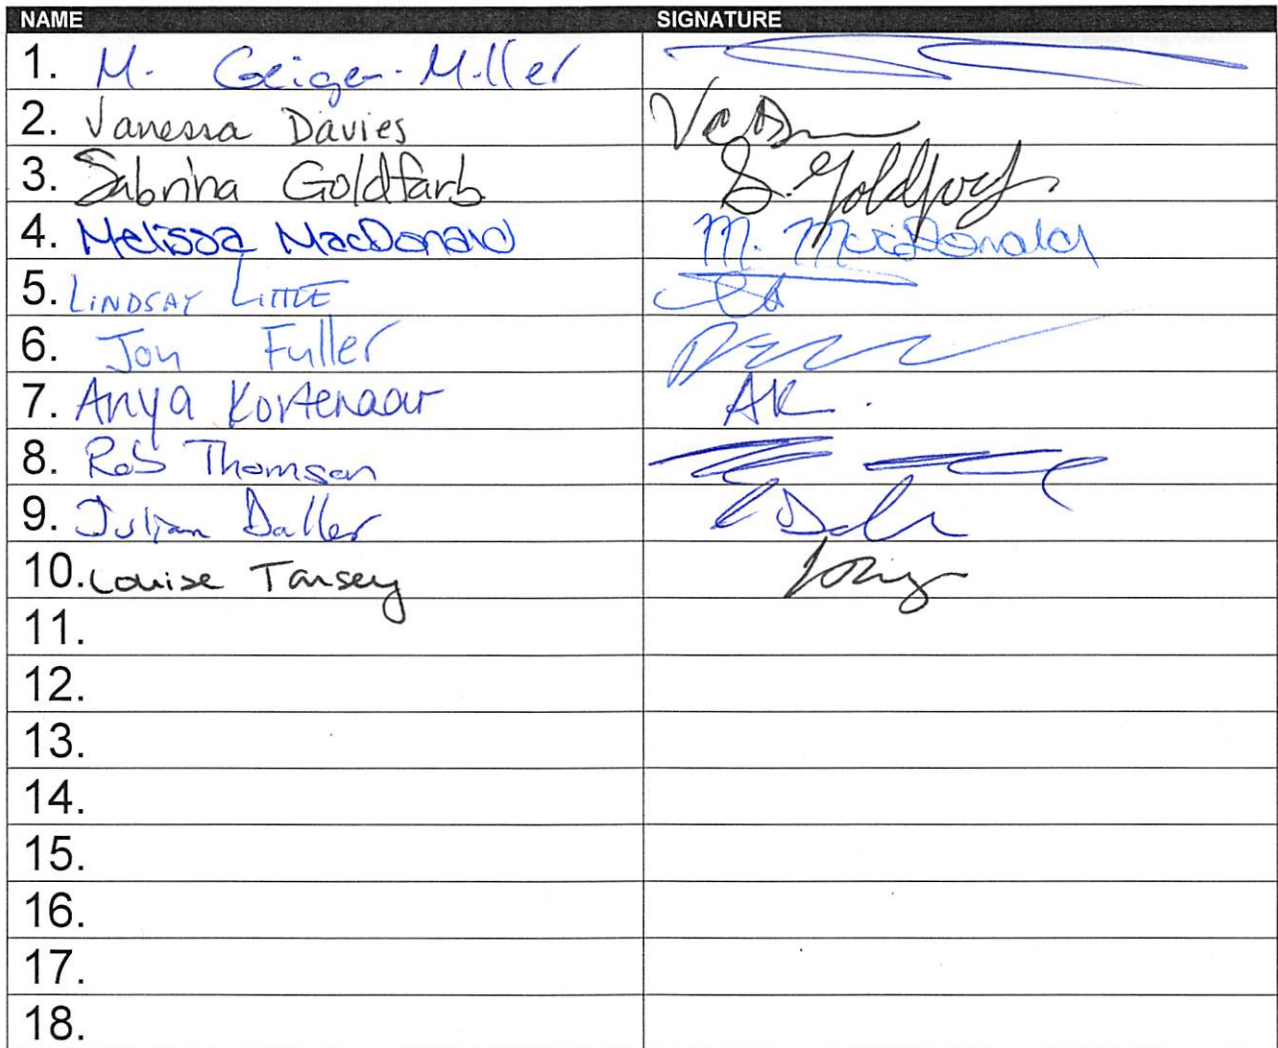 NAME SIGNATURE
1. M. Geiger-Miller
2. Vanessa Davies
3. Sabrina Goldfarb S. Goldfarb
4. Melissa MacDonald M. MacDonald
5. LINDSAY LITTLE
6. Jon Fuller
7. Anya Kortenaar AK.
8. Rob Thomson
9. Julian Daller
10. Louise Tansey
11.
12.
13.
14.
15.
16.
17.
18.